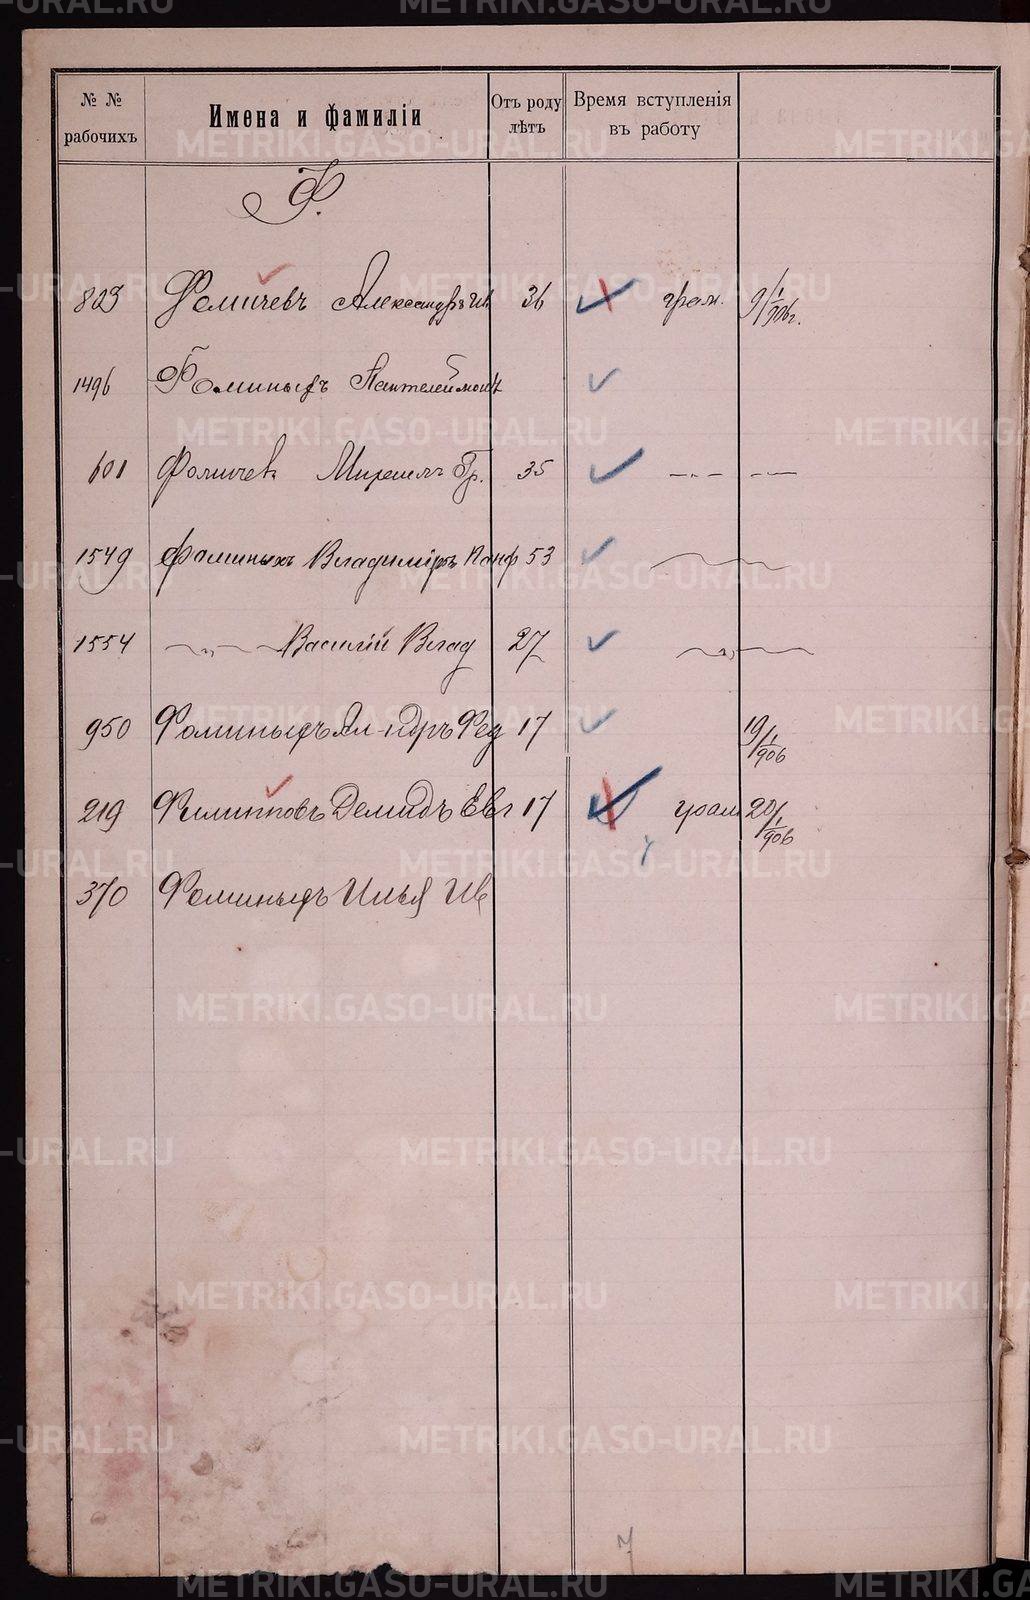 № № рабочихъ Имена и фамиліи Отъ роду лѣтъ Время вступленія въ работу
Ф.
823 Фомичевъ Александръ Ив 36 грам. 9/1 906 г.
1496 Фоминыхъ Пантелеймонъ
601 Фомичев Михаилъ Гр. 35 —„— —„—
1549 Фоминыхъ Владиміръ Панф 53
1554 —„— Василій Влад 27 —„—
950 Фоминыхъ Ал-ндръ Фед 17 19/1 906
219 Филипповъ Демидъ Евг 17 грам 20/1 906
370 Фоминыхъ Илья Ив
METRIKI.GASO-URAL.RU